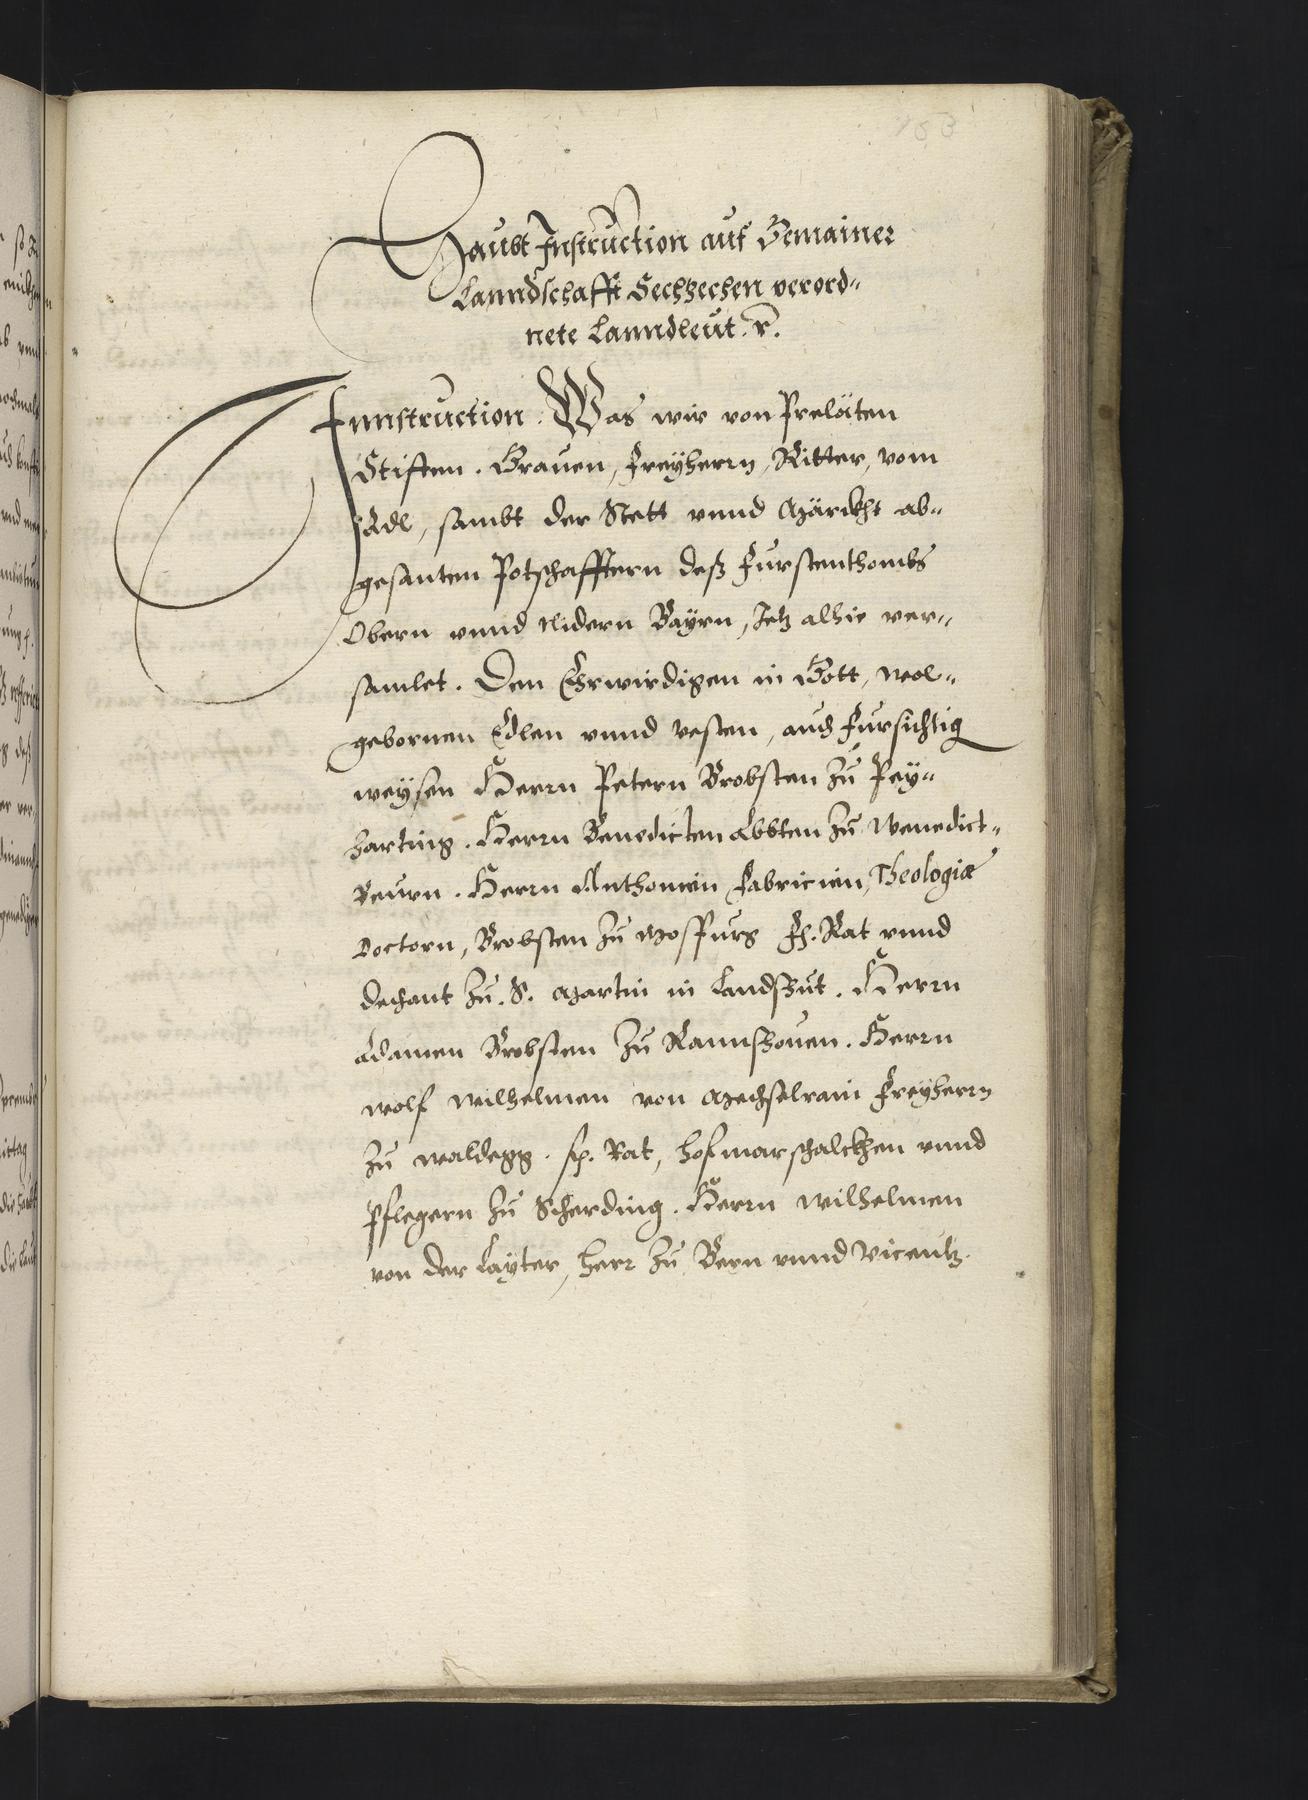 153
Haubt Instruction auf Gemainer
Lanndschafft Sechzechen verord-
nete Lanndleut. r.
Innstruction. Was wir von Prelaten
Stifften. Grauen, Freyherrn, Ritter, vom
Adl, sambt der Stett vnnd Märckht ab-
gesanten Potschafftern deß Furstenthombs
Obern vnnd Nidern Bayrn, Jetz alhie ver-
samlet. Den Erwirdigen in Gott, wol-
gebornen Edlen vnnd vesten, auch Fursichtig
weysen Herrn Petern Brobsten zu Pey-
harting. Herrn Benedicten Abbten zu Wenedict-
Beurn. Herrn Anthonien Fabricien, Theologiæ
Doctorn, Brobsten zu Mospurg Fh. Rat vnnd
Dechant zu. S. Martin in Landshut. Herrn
Adamen Brobsten zu Rannshouen. Herrn
Wolf Wilhelmen von Mechselrain Freyherrn
zu Waldegg. Fh. Rat, Hofmarschalckhen vnnd
Pflegern zu Scherding. Herrn Wilhelmen
von der Layter, Herr zu Bern vnnd Vicentz.